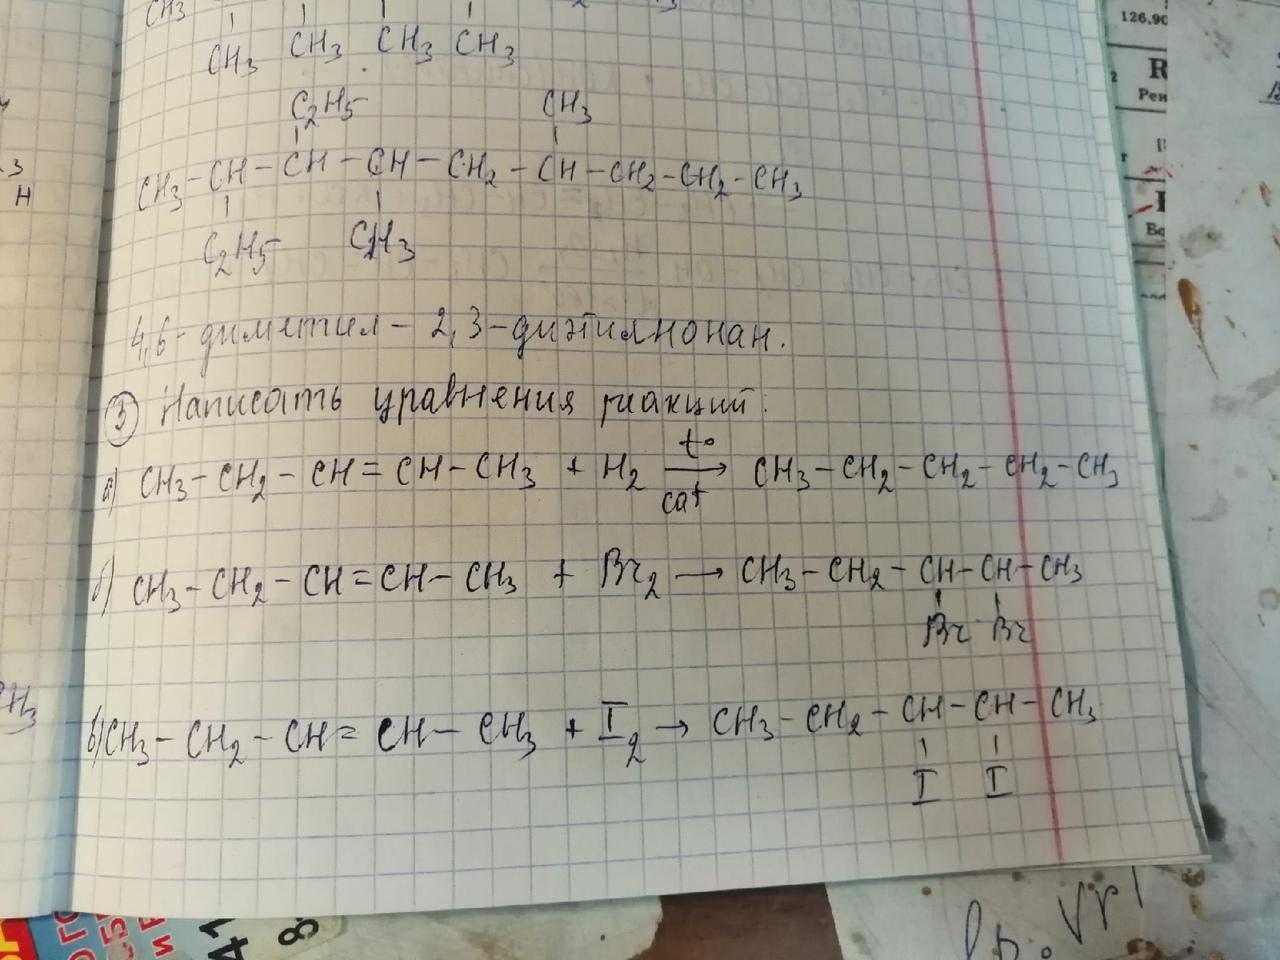 CH3
CH3 CH3 CH3 CH3
C2H5 CH3
CH3-CH-CH-CH-CH2-CH-CH2-CH2-CH3
C2H5 CH3
4,6-диметил-2,3-диэтилнонан.
3 Написать уравнения реакций:
а) CH3-CH2-CH=CH-CH3 + H2 t° cat → CH3-CH2-CH2-CH2-CH3
б) CH3-CH2-CH=CH-CH3 + Br2 → CH3-CH2-CH-CH-CH3
Br Br
в) CH3-CH2-CH=CH-CH3 + I2 → CH3-CH2-CH-CH-CH3
I I
3
H
CH3
126,90
R
Рен
41
8